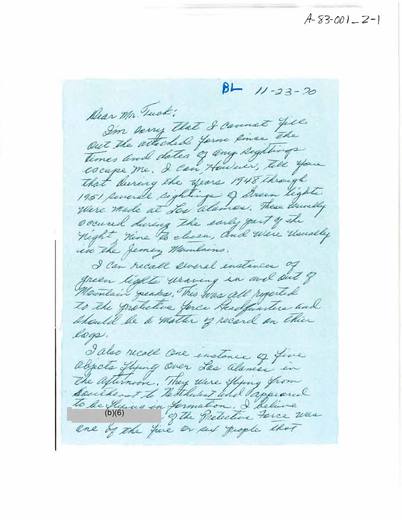 A-83-001-2-1
BL 11-23-70
Dear Mr. Tusk:
I'm sorry that I cannot fill
out the attached form since the
times and dates of any sightings
escape me. I can However, tell you
that during the years 1948 through
1951 several sightings of Green lights
were made at Los Alamos. These usually
occured during the early part of the
night, nine to eleven, and were usually
in the Jemez Mountains.
I can recall several instances of
green lights weaving in and out of
Mountain peaks. This was all reported
to the Protective Force Headquarters and
should be a matter of record on their
logs.
I also recall one instance of five
objects flying over Los Alamos in
the afternoon. They were flying from
Southeast to Northwest and appeared
to be flying in formation. I believe
(b)(6) of the Protective Force was
one of the five or six people that